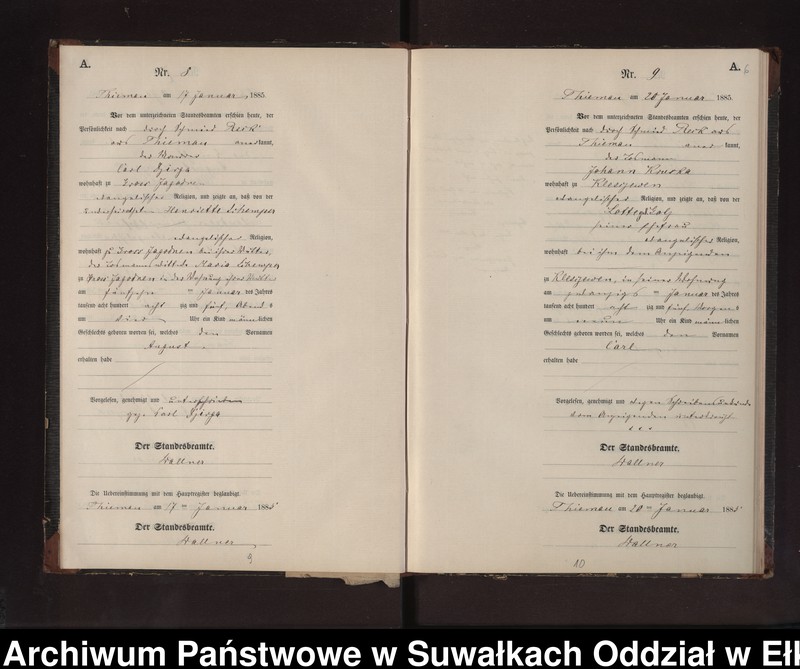 A.
Nr. 8
Thiemau am 17 Januar 1885.
Vor dem unterzeichneten Standesbeamten erschien heute, der
Persönlichkeit nach
aus Thiemau anerkannt,
Carl
wohnhaft zu Gross Jagodnen
evangelischer Religion, und zeigte an, daß von der
Henriette
evangelischer Religion,
wohnhaft zu Gross Jagodnen bei ihrer Mutter,
Maria
zu Gross Jagodnen in der Wohnung ihrer Mutter
am fünfzehn ten Januar des Jahres
tausend acht hundert acht zig und fünf, Abends
um Uhr ein Kind männlichen
Geschlechts geboren worden sei, welches den Vornamen
August
erhalten habe
Vorgelesen, genehmigt und unterschrieben
gez. Carl
Der Standesbeamte.
Hallner
Die Uebereinstimmung mit dem Hauptregister beglaubigt.
Thiemau am 17 ten Januar 1885
Der Standesbeamte.
Hallner
9
A. 6
Nr. 9
Thiemau am 20 Januar 1885.
Vor dem unterzeichneten Standesbeamten erschien heute, der
Persönlichkeit nach durch Schmied aus
Thiemau anerkannt,
der Losmann
Johann
wohnhaft zu Kleszewen
evangelischer Religion, und zeigte an, daß von der
Lotte
seiner Ehefrau
evangelischer Religion,
wohnhaft bei ihm dem Anzeigenden
zu Kleszewen, in seiner Wohnung
am zwanzigs ten Januar des Jahres
tausend acht hundert acht zig und fünf Morgens
um neun Uhr ein Kind männlichen
Geschlechts geboren worden sei, welches den Vornamen
Carl
erhalten habe
Vorgelesen, genehmigt und wegen Schreibensunkunde
vom Anzeigenden unterkreuzt
+ + +
Der Standesbeamte.
Hallner
Die Uebereinstimmung mit dem Hauptregister beglaubigt.
Thiemau am 20 ten Januar 1885
Der Standesbeamte.
Hallner
10
Archiwum Państwowe w Suwałkach Oddział w Ełk